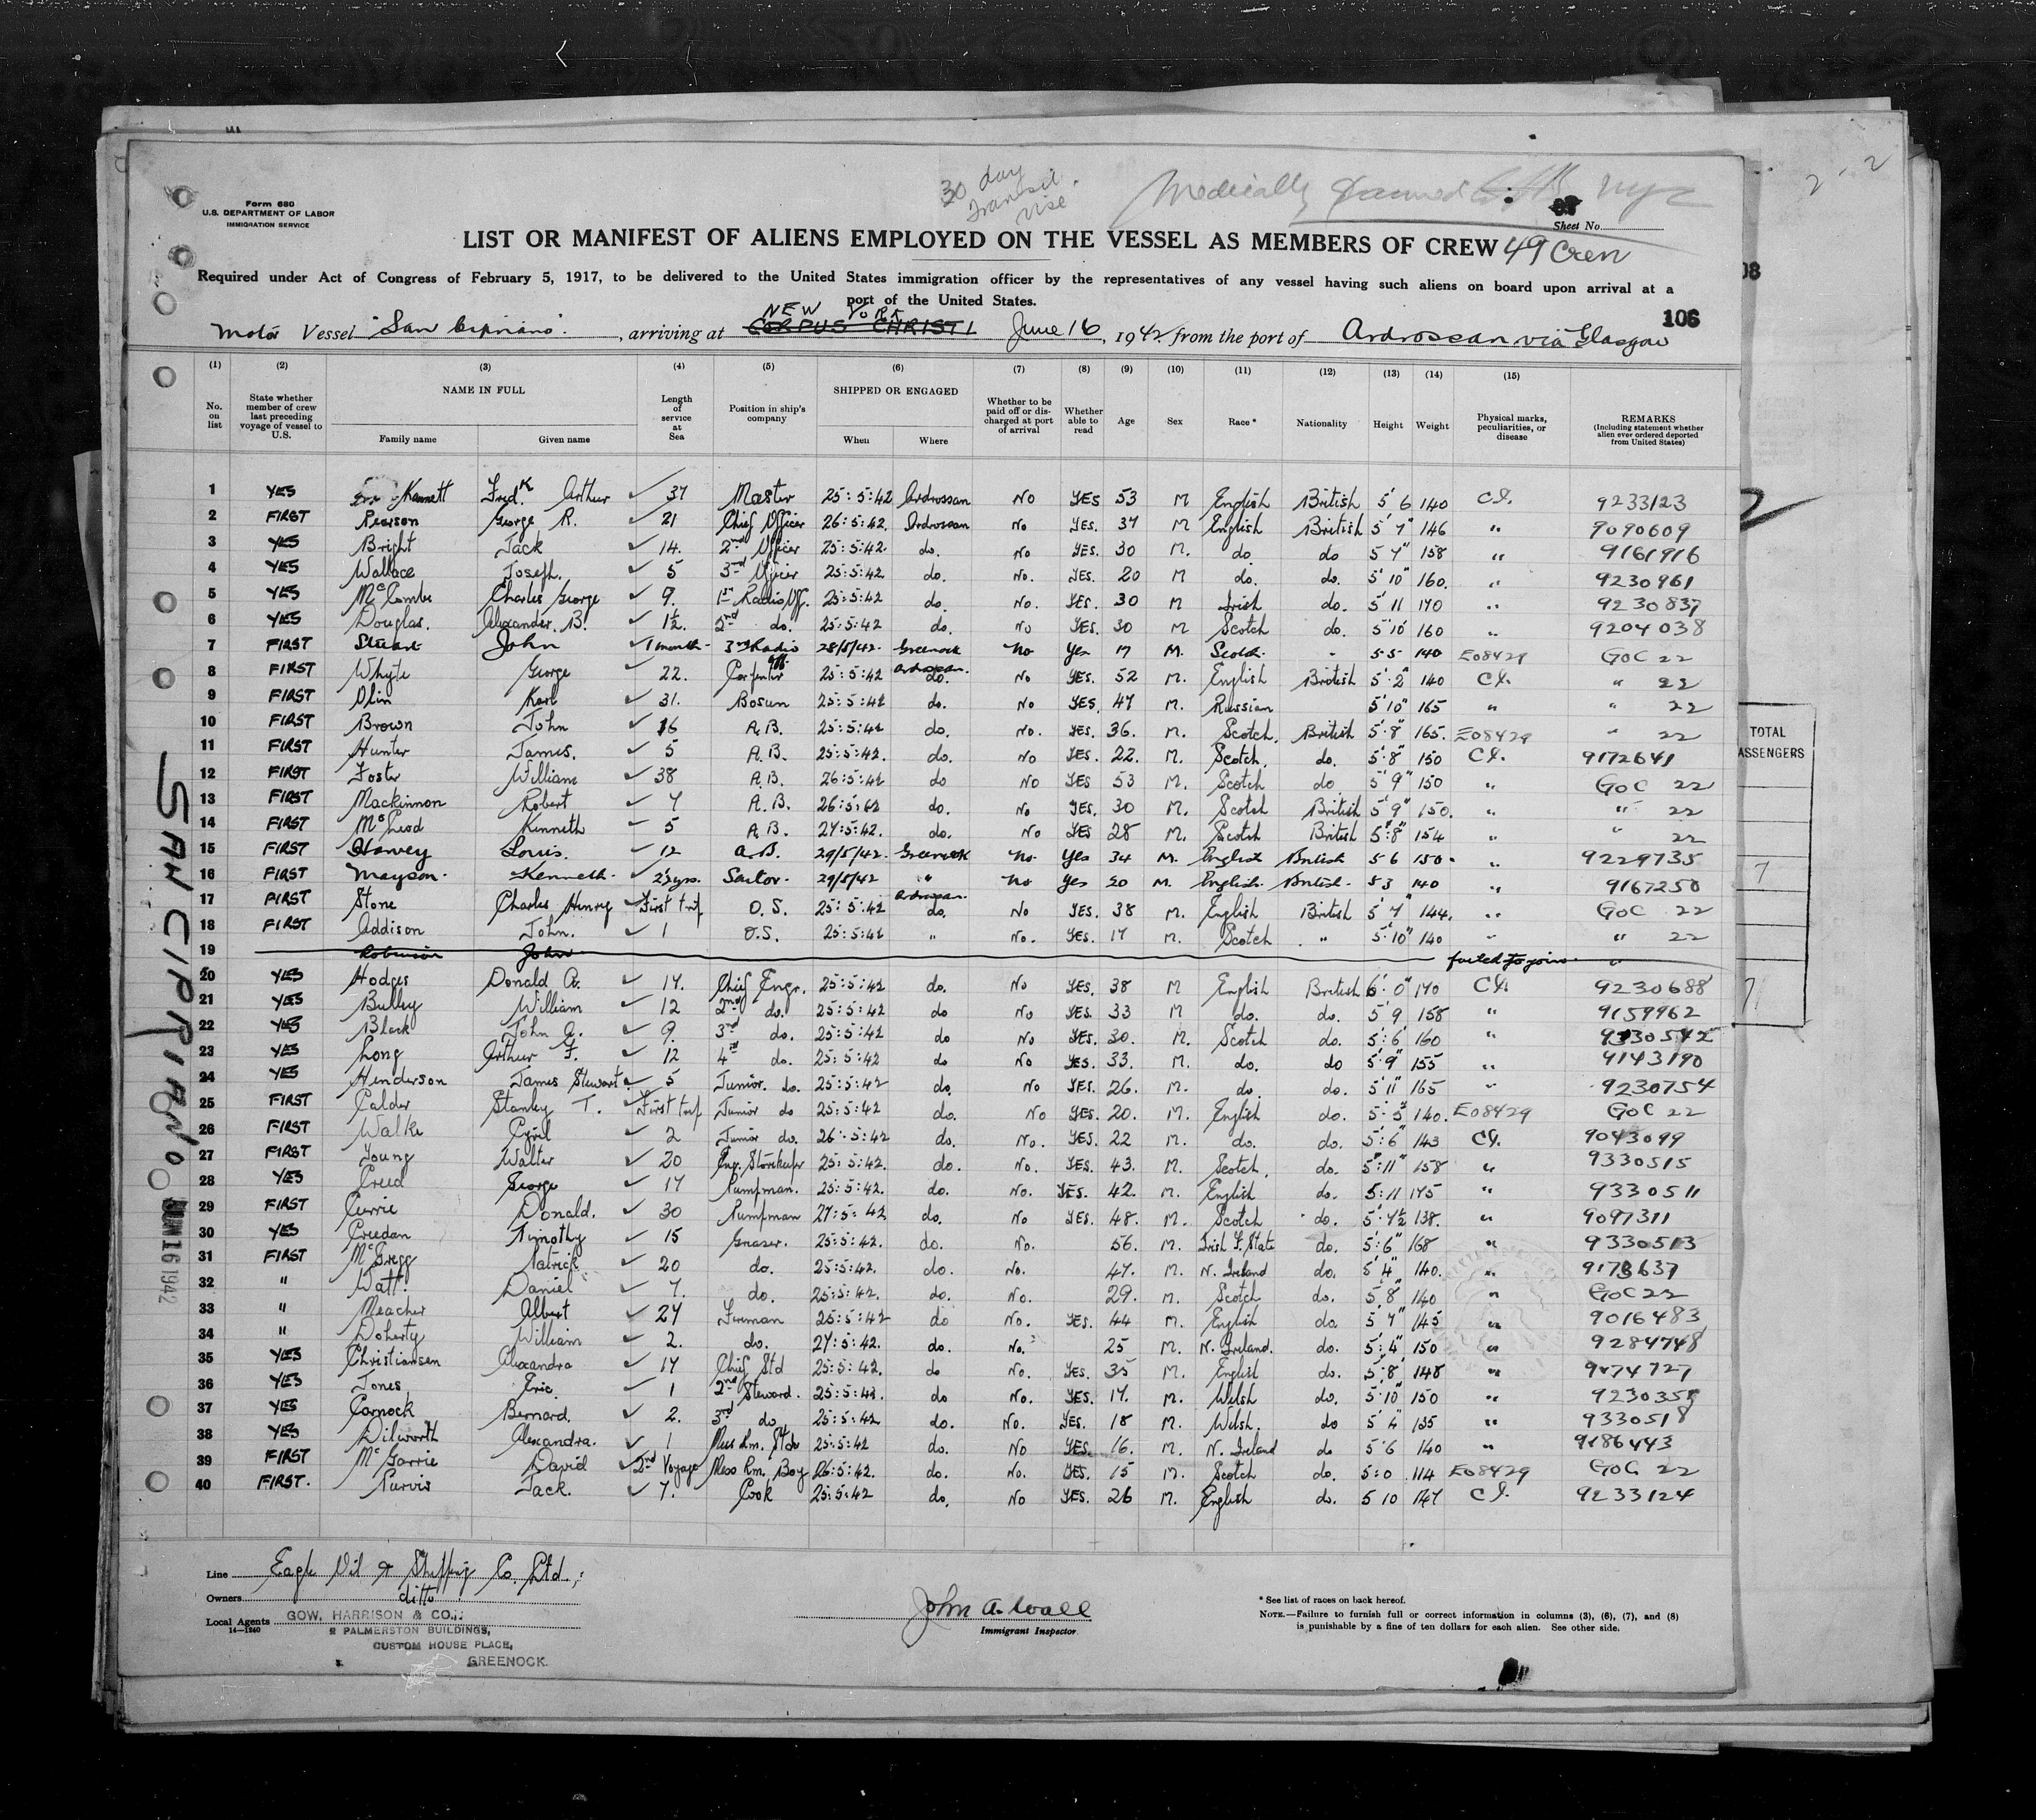 30 day
Transit
vise
Medically Examined
Form 680
U.S. DEPARTMENT OF LABOR
IMMIGRATION SERVICE
Sheet No.
LIST OR MANIFEST OF ALIENS EMPLOYED ON THE VESSEL AS MEMBERS OF CREW 49 Crew
Required under Act of Congress of February 5, 1917, to be delivered to the United States immigration officer by the representatives of any vessel having such aliens on board upon arrival at a
port of the United States.
NEW YORK
106
Motor Vessel "San Cipriano", arriving at CORPUS CHRISTI June 16, 1942, from the port of Ardrossan via Glasgow
(1) (2) (3) (4) (5) (6) (7) (8) (9) (10) (11) (12) (13) (14) (15)
No. on list
State whether member of crew last preceding voyage of vessel to U.S.
NAME IN FULL
Family name Given name
Length of service at Sea
Position in ship's company
SHIPPED OR ENGAGED
When Where
Whether to be paid off or discharged at port of arrival
Whether able to read
Age
Sex
Race*
Nationality
Height
Weight
Physical marks, peculiarities, or disease
REMARKS
(Including statement whether alien ever ordered deported from United States)
1 YES Kennett Fredk Arthur 37 Master 25:5:42 Ardrossan NO YES 53 M English British 5'6 140 9233123
2 FIRST Pearson George R. 21 Chief Officer 26:5:42. Ardrossan No YES. 37 M English British 5'7" 146 " 9090609
3 YES Bright Jack 14. 2nd Officer 25:5:42. do. No YES. 30 M. do. do 5 7" 158 " 9161916
4 YES Wallace Joseph. 5 3rd Officer 25:5:42. do. No. YES. 20 M do. do. 5'10" 160. " 9230961
5 YES McCombe Charles George 9. 1st Radio Off. 25:5:42 do. No. YES. 30 M Irish do. 5'11 170 " 9230837
6 YES Douglas. Alexander. B. 1½. 2nd do. 25:5:42 do. No YES. 30 M Scotch do. 5'10 160 " 9204038
7 FIRST Stuart John 1 month 3rd Radio Off. 28/5/42. Greenock No Yes 17 M. Scotch. " 5 5 140 E08429 GOC 22
8 FIRST Whyte George 22. Carpenter 25:5:42 Ardrossan do. No YES. 52 M. English British 5'2" 140 " 22
9 FIRST Olin Karl 31. Bosun 25:5:42 do. No YES. 47 M. Russian 5'10" 165 " " 22
10 FIRST Brown John 16 A.B. 25:5:42 do. No. YES. 36. M. Scotch. British 5'8" 165. E08429 " 22
11 FIRST Hunter James. 5 A.B. 25:5:42. do. No YES. 22. M. Scotch. do. 5'8" 150 9172641
12 FIRST Foster William 38 A.B. 26:5:42 do NO YES 53 M. Scotch do 5'9" 150 " GOC 22
13 FIRST Mackinnon Robert 7 A.B. 26:5:42 do. No YES. 30 M. Scotch British 5'9" 150. " " 22
14 FIRST McLeod Kenneth 5 A.B. 27:5:42. do. No YES 28 M. Scotch British 5'8" 154 " " 22
15 FIRST Harvey Louis. 12 A.B. 29/5/42. Greenock No Yes 34 M. English British 5 6 150 " 9229735
16 FIRST Mayson. Kenneth. 2½yrs. Sailor. 29/5/42 " No Yes 20 M. English. British. 5 3 140 " 9167250
17 FIRST Stone Charles Henry First trip O.S. 25:5:42 Ardrossan do. No YES. 38 M. English British 5'7" 144. " GOC 22
18 FIRST Addison John. 1 O.S. 25:5:42 " No. YES. 17 M. Scotch " 5'10" 140 " " 22
19 Robinson John failed to join "
20 YES Hodges Donald A. 17. Chief Engr. 25:5:42 do. No YES. 38 M English British 6'0" 170 9230688
21 YES Bulley William 12 2nd do. 25:5:42 do No YES. 33 M do. do. 5'9 158 " 9159962
22 YES Black John A. 9. 3rd do. 25:5:42 do No YES. 30. M. Scotch do. 5'6 160 "
23 YES Long Arthur F. 12 4th do. 25:5:42 do No YES. 33. M. do. do 5'9" 155 " 9143190
24 YES Henderson James Stewart. 5 Junior. do. 25:5:42 do. No YES. 26. M. do. do. 5'11" 165 " 9230754
25 FIRST Calder Stanley T. First trip Junior do 25:5:42 do. No YES. 20. M. English do. 5'5" 140. E08429 GOC 22
26 FIRST Walke Cyril 2 Junior do. 26:5:42 do. No. YES. 22 M. do. do. 5'6" 143 9043099
27 FIRST Young Walter 20 Eng. Storekeeper 25:5:42. do. No. YES. 43. M. Scotch. do. 5'11" 158 " 9330515
28 YES Creed George 17 Pumpman. 25:5:42. do. No. YES. 42. M. English do. 5:11 175 " 9330511
29 FIRST Currie Donald. 30 Pumpman 27:5:42 do. No YES. 48. M. Scotch do. 5'7½ 138. " 9097311
30 YES Creedan Timothy 15 Greaser. 25:5:42. do. No. 56. M. Irish F. State do. 5'6" 168 " 9330513
31 FIRST McGregg Patrick 20 do. 25:5:42. do. No. 47. M. N. Ireland do. 5'4" 140. " 9178637
32 " Watt. Daniel 7. do. 25:5:42. do. No. 29. M. Scotch do. 5'8" 140 " GOC 22
33 " Meacher Albert 27 Fireman 25:5:42 do No. YES. 44 M. English do. 5'7" 145 " 9016483
34 " Doherty William 2. do. 27:5:42. do. No. 25 M. N. Ireland. do. 5'4" 150 " 9284748
35 YES Christiansen Alexandra 17 Chief Std 25:5:42. do No. YES. 35 M. English do. 5'8 148 " 9074727
36 YES Jones Eric. 1 2nd Steward. 25:5:42. do No. YES. 17. M. Welsh do. 5'10" 150 "
37 YES Carnock Bernard. 2. 3rd do 25:5:42 do. No. YES. 18 M. Welsh. do 5'4" 135 " 9330518
38 YES Dilworth Alexandra. 1 Mess Rm. Std. 25:5:42 do. No YES. 16. M. N. Ireland do 5'6 140 " 9186443
39 FIRST McGarrie David 2nd Voyage Mess Rm. Boy 26:5:42. do. No. YES. 15 M. Scotch do. 5:0 114 E08429 GOC 22
40 FIRST. Purvis Jack. 7. Cook 25:5:42 do. No YES. 26 M. English do. 5 10 147 9233124
SAN CIPRIANO
JUN 16 1942
TOTAL
PASSENGERS
Line Eagle Oil & Shipping Co. Ltd.;
Owners ditto
Local Agents GOW, HARRISON & CO.,
14—1240
2 PALMERSTON BUILDINGS,
CUSTOM HOUSE PLACE,
GREENOCK.
John A. Wall
Immigrant Inspector
* See list of races on back hereof.
NOTE.—Failure to furnish full or correct information in columns (3), (6), (7), and (8)
is punishable by a fine of ten dollars for each alien. See other side.